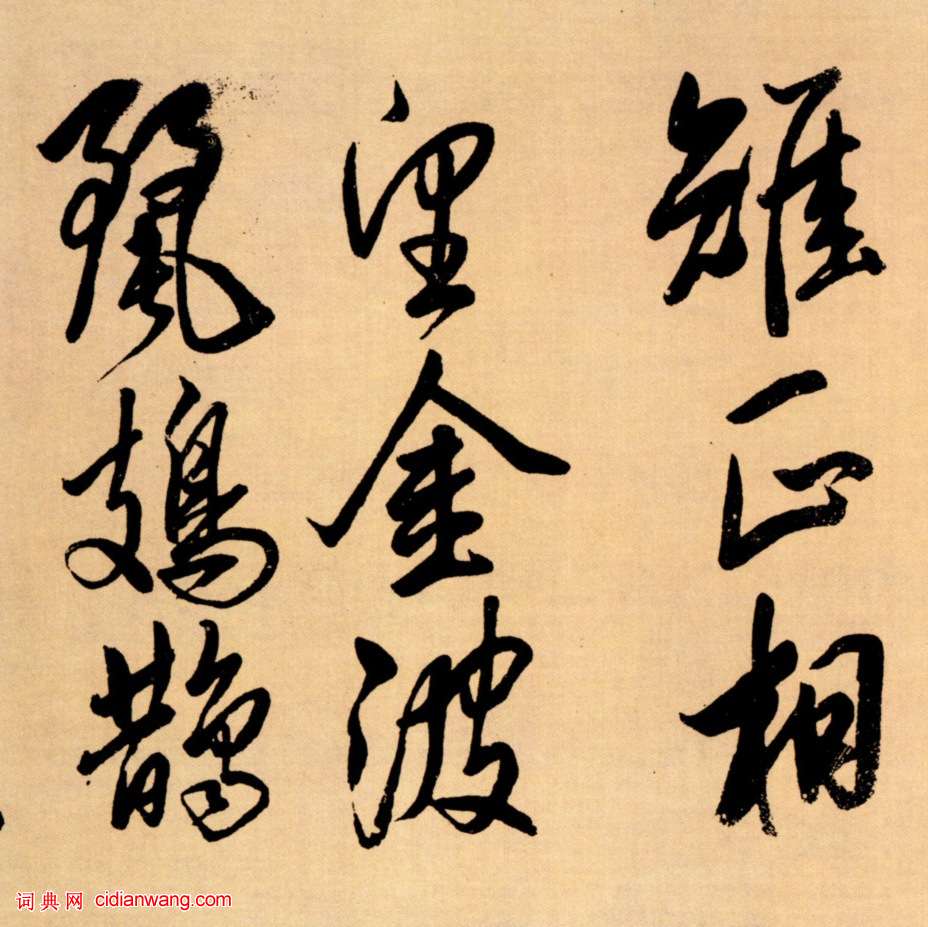 雉正相
望金波
麗鳷鵲
词典网 cidianwang.com